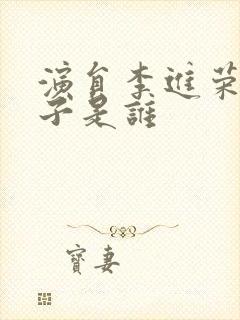 演員李進荣
子是誰
寶妻